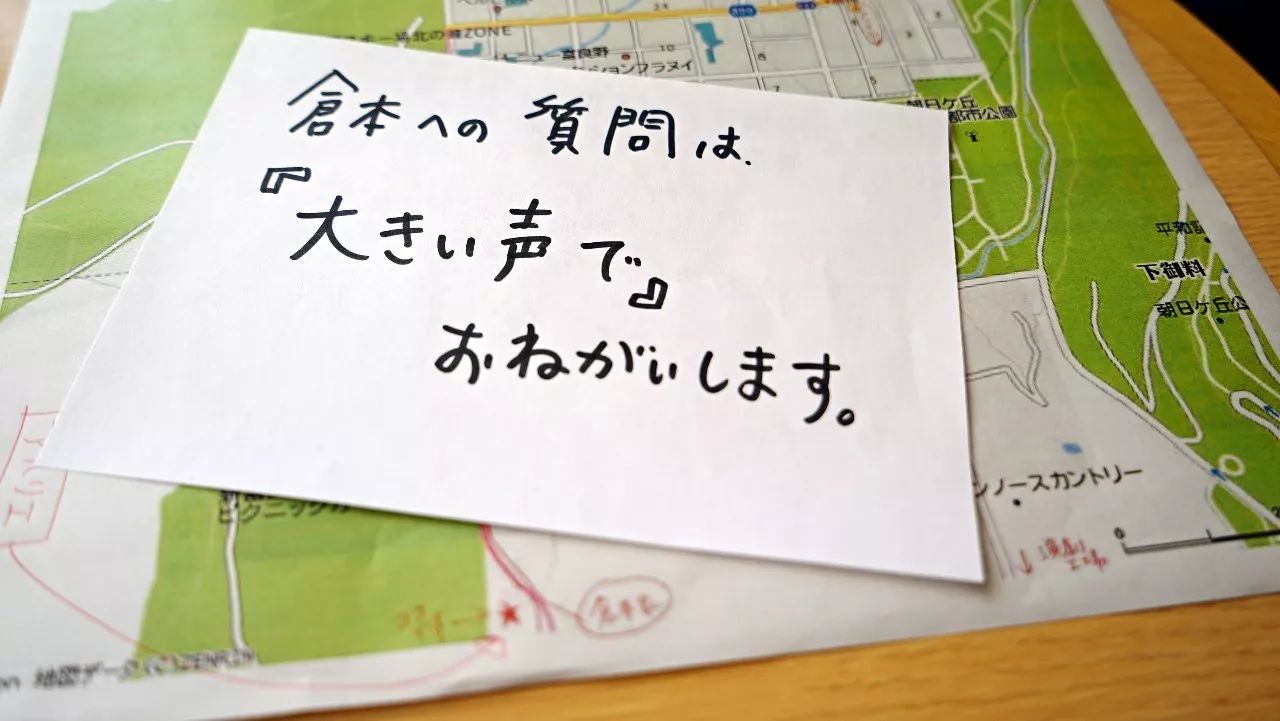 倉本への質問は、
『大きい声で』
おねがいします。
北の峰ZONE
24
10
8
7
5
3
ニュー富良野
ションフラヌイ
朝日ケ丘
都市公園
平和
下御料
朝日ケ丘公
ノースカントリー
0
↓演劇
工場
アトリエ
ピクニックガ
地図データ(C)ZENRIN